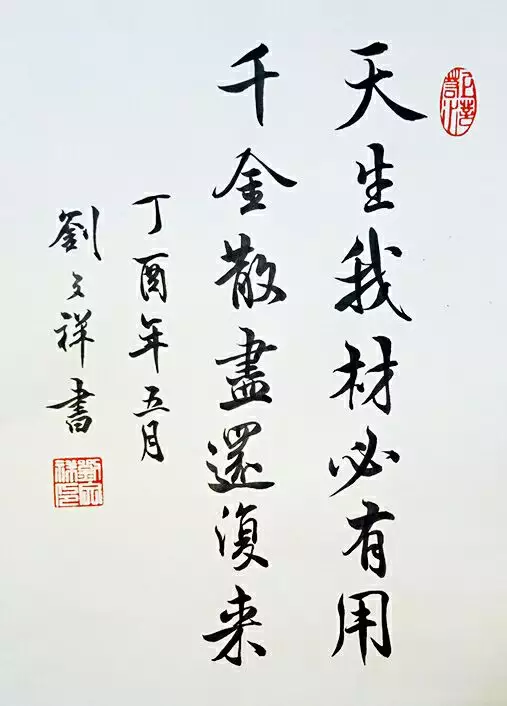 天生我材必有用
千金散盡還復来
丁酉年五月
劉文祥書